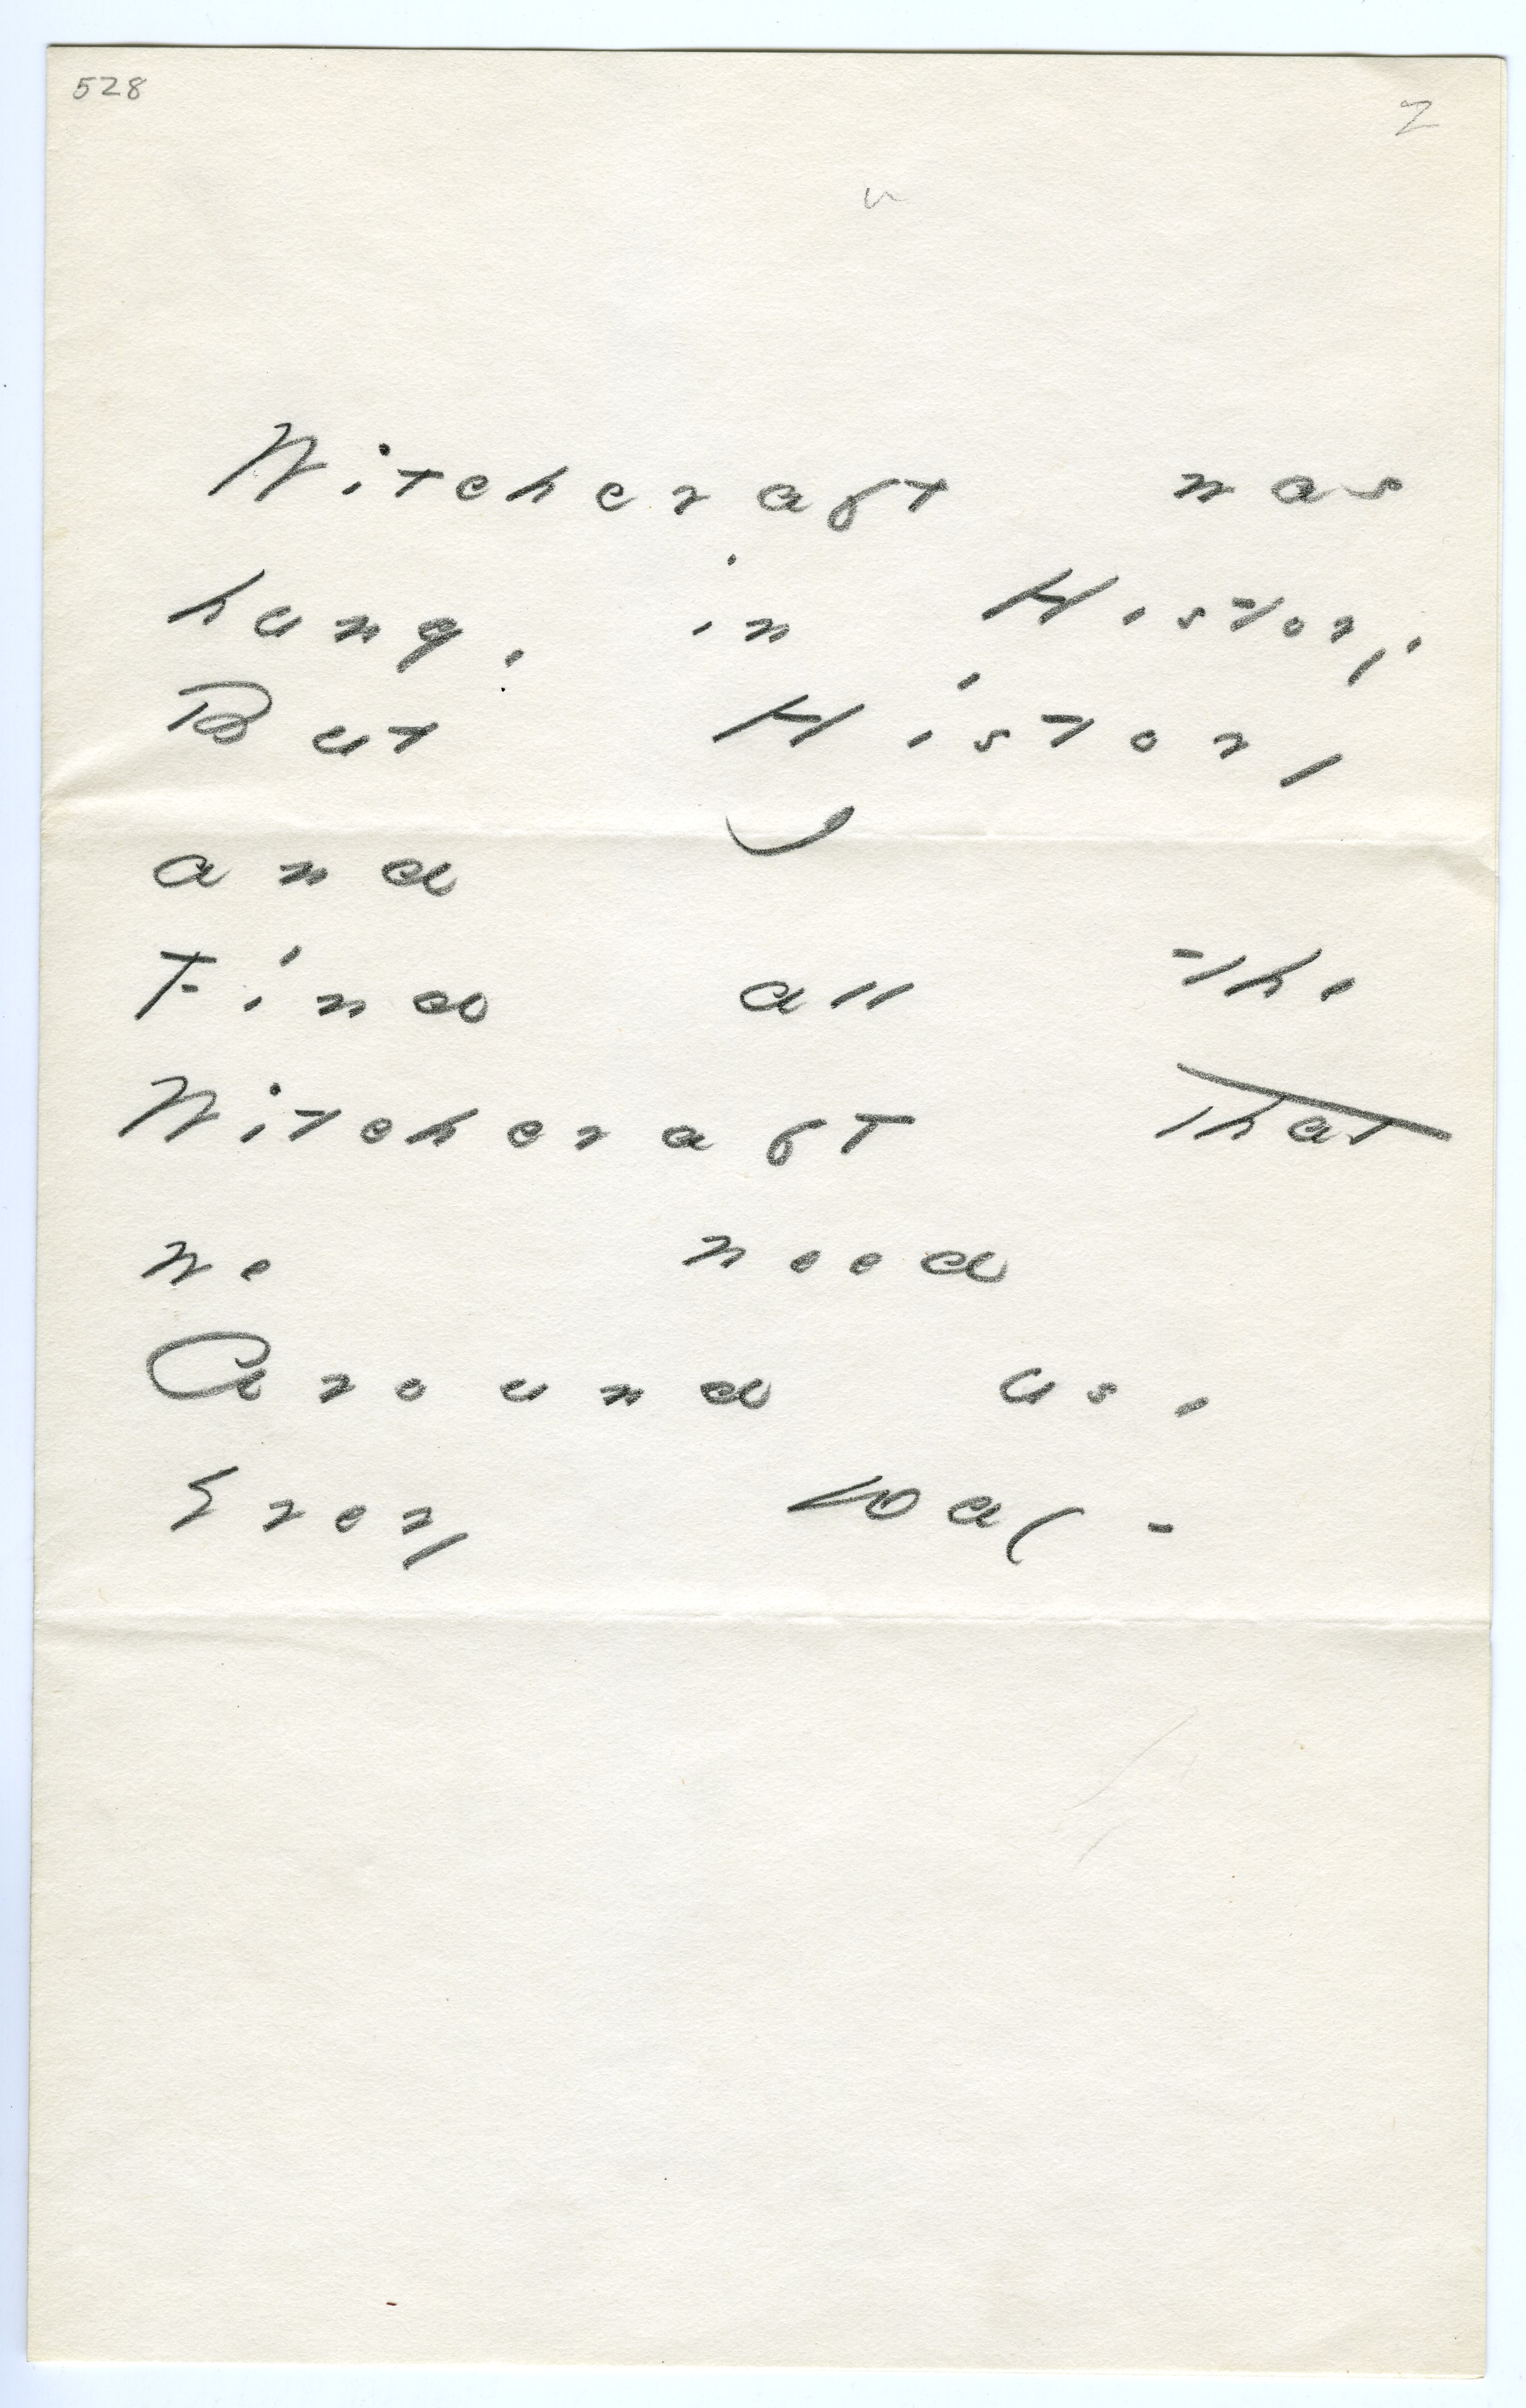 528
2
Witchcraft was
hung, in History,
But History
and I
Find all the
Witchcraft that
we need
Around us,
Every Day -